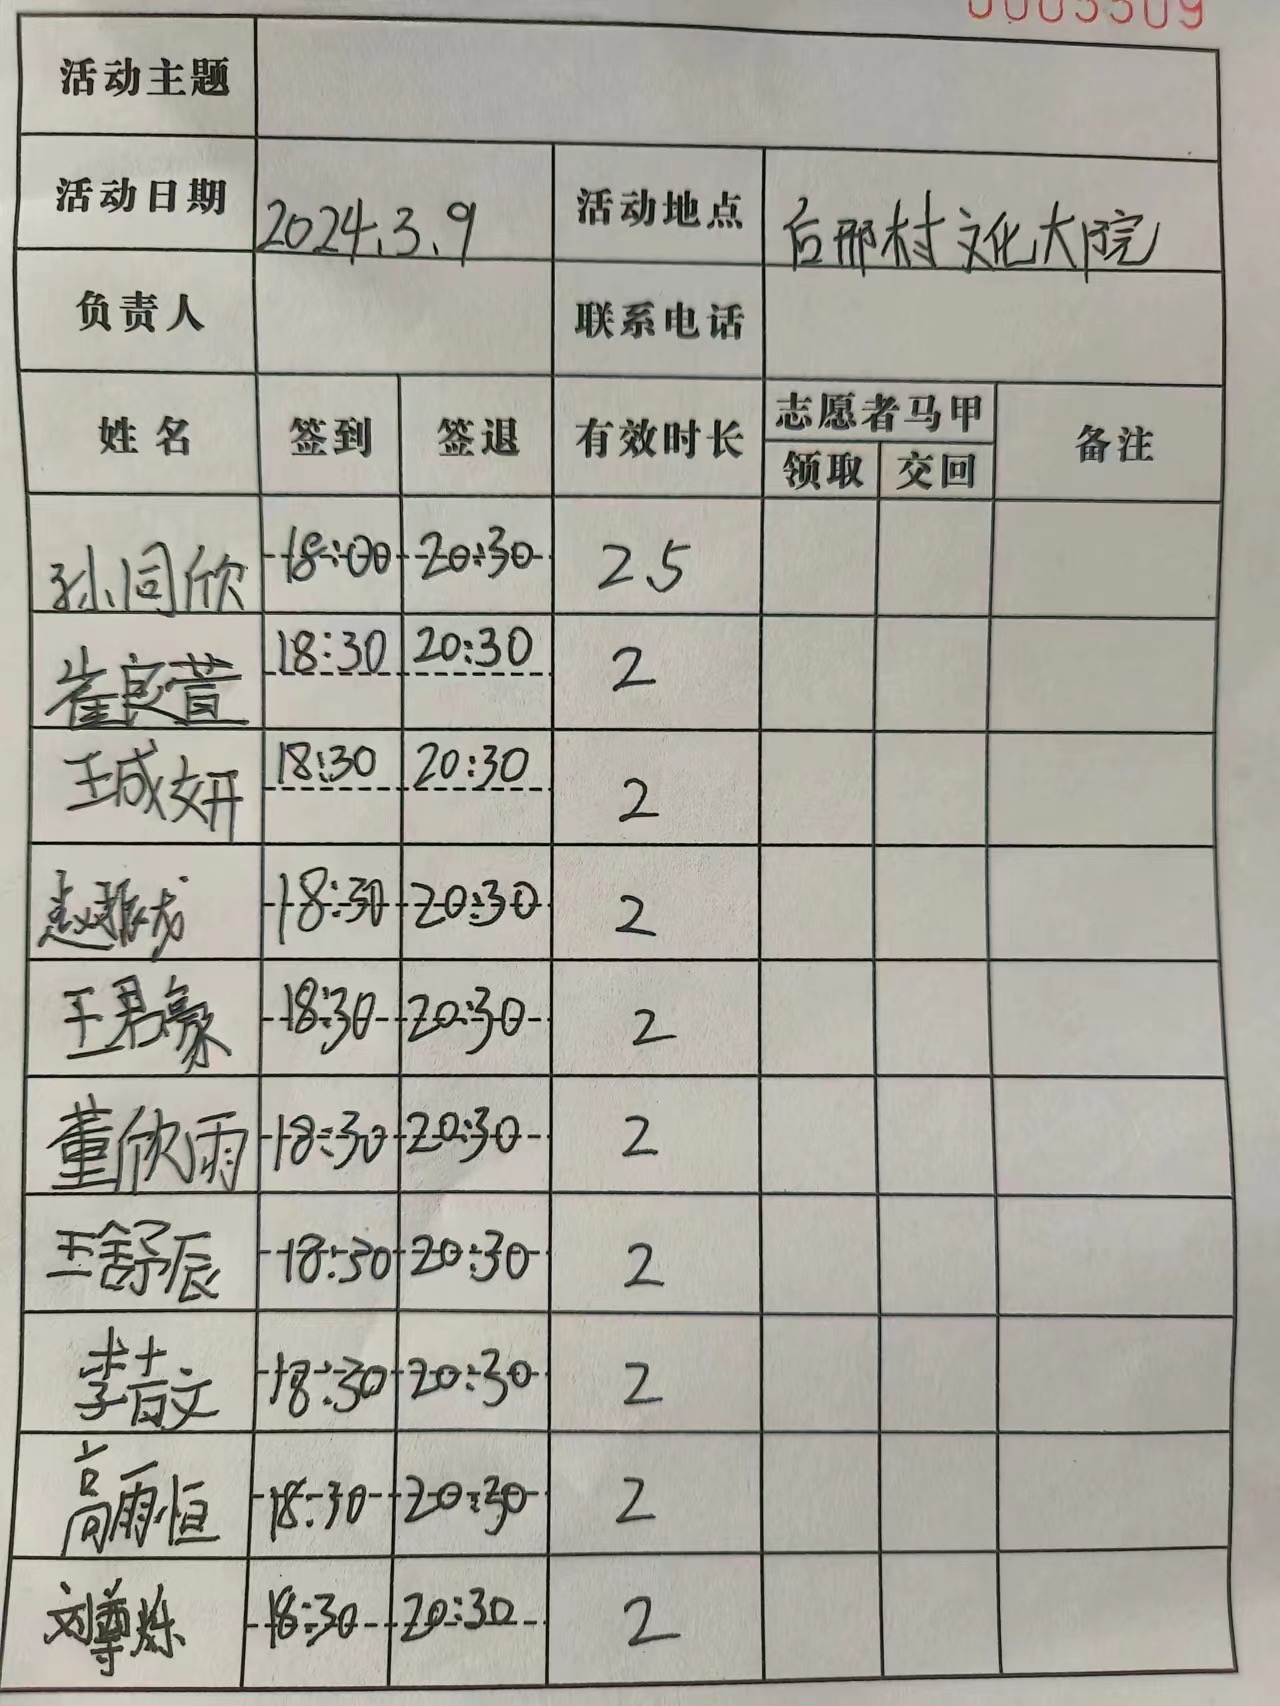 0005509
活动主题
活动日期 2024.3.9 活动地点 后邢村文化大院
负责人 联系电话
姓名 签到 签退 有效时长 志愿者马甲 备注
领取 交回
孙同欣 18:00 20:30 2.5
崔良萱 18:30 20:30 2
王成妍 18:30 20:30 2
赵振成 18:30 20:30 2
王君豪 18:30 20:30 2
董欣雨 18:30 20:30 2
王舒辰 18:30 20:30 2
李文 18:30 20:30 2
高雨恒 18:30 20:30 2
刘尊烁 18:30 20:30 2